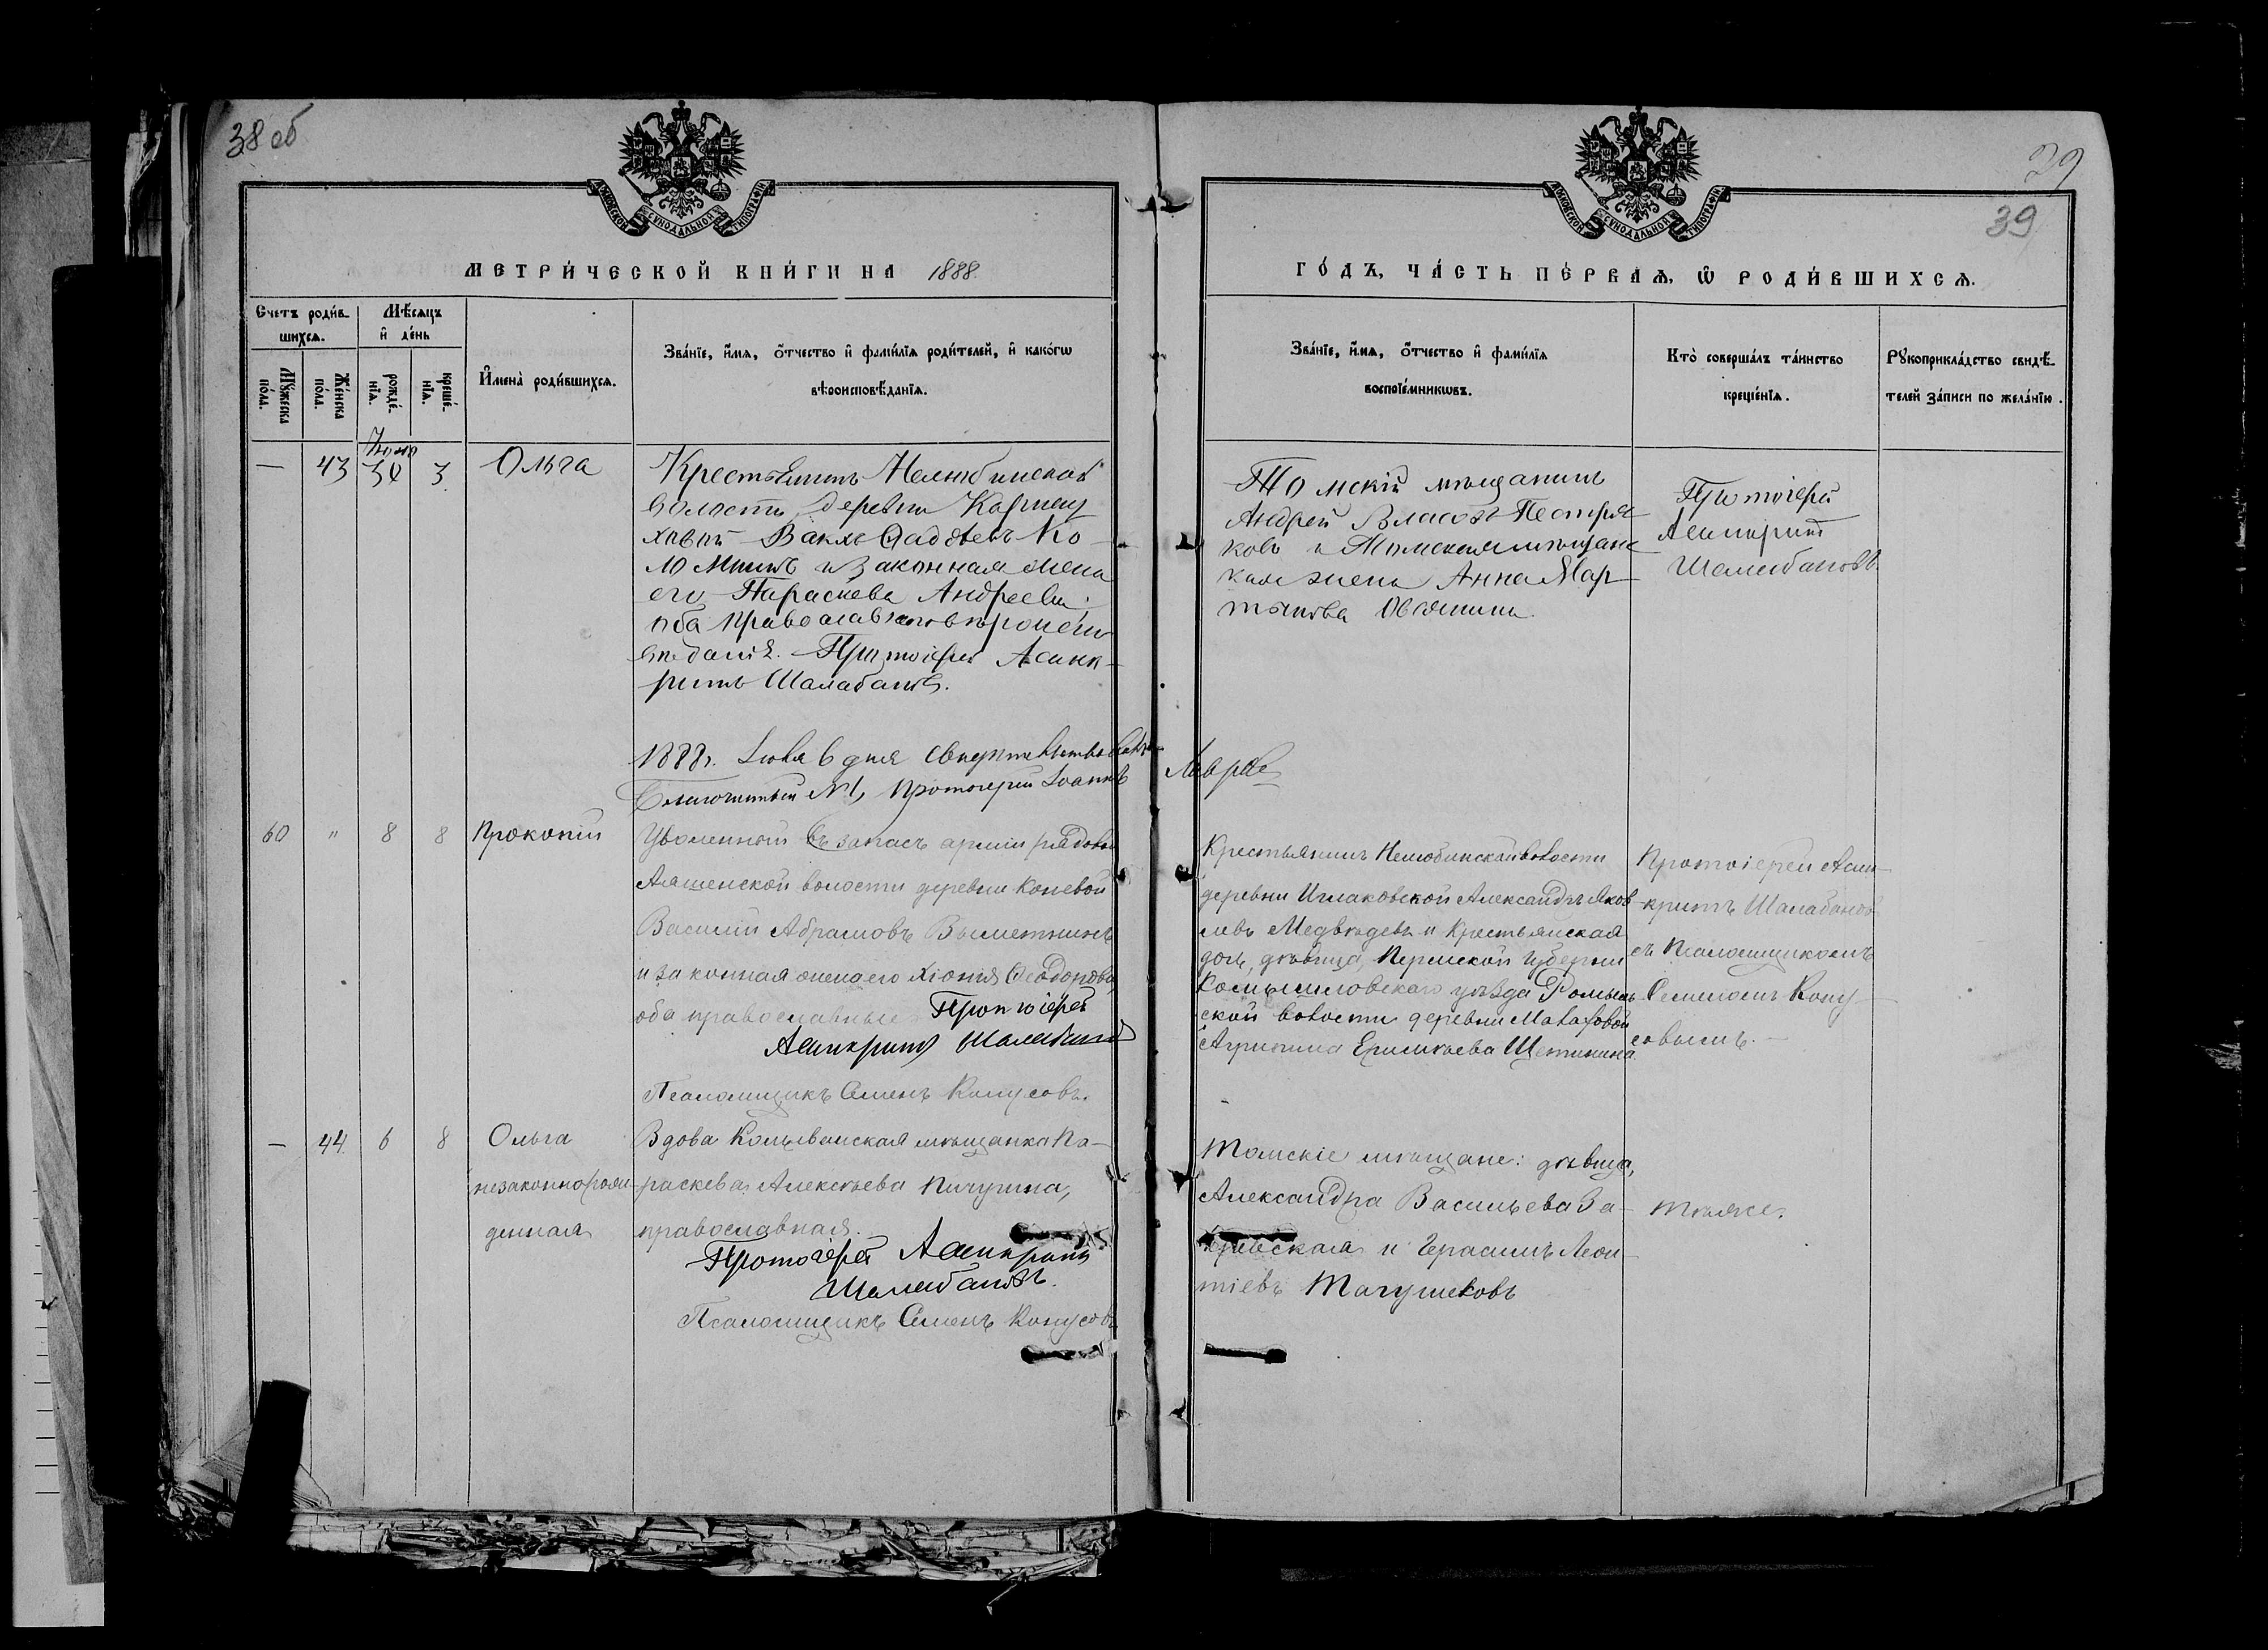 38 об
МОСКОВСКОЙ СѴНОДАЛЬНОЙ ТИПОГРАФІИ
МЕТРИ́ЧЕСКОЙ КНИ́ГИ НА 1888.
Счетъ роди́в-
шихсѧ.
Мѣ́сѧцъ
и҆ де́нь
Мꙋ́жеска
по́ла.
Же́нска
по́ла.
рожде́-
нїѧ.
креще́-
нїѧ.
И҆мена̀ роди́вшихсѧ.
Зва́нїе, и҆́мѧ, ѻ҆́тчество и҆ фами́лїѧ роди́телей, и҆ како́гѡ
вѣроисповѣ́данїѧ.
— 43 30 3 Ольга
Крестьянинъ Нелюбинской
волости деревни
Ѳаддѣевъ Ко-
и законная жена
его Параскева Андреева;
оба православнаго вѣроиспо-
вѣданія. Протоіерей Асинк-
ритъ Шалабановъ.
1888г. Іюля 6 дня свидѣтельствовалъ
Благочинный №1, Протоіерей Іоаннъ Лавровъ
60 " 8 8 Прокопій
Уволенный въ запасъ арміи рядовой
волости деревни Коневой
Василій Абрамовъ
и законная жена его Хіонія Ѳеодорова,
оба православные Протоіерей
Асинкритъ Шалабановъ
Псаломщикъ Семенъ Конусовъ.
— 44. 6 8 Ольга
незаконнорож-
денная
Вдова Колыванская мѣщанка Па-
раскева Алексѣева Пичугина,
православная.
Протоіерей Асинкритъ
Шалабановъ.
Псаломщикъ Семенъ Конусовъ
29
39
МОСКОВСКОЙ СѴНОДАЛЬНОЙ ТИПОГРАФІИ
ГО́ДЪ, ЧА́СТЬ ПЕ́РВАѦ, Ѡ҆ РОДИ́ВШИХСѦ.
Зва́нїе, и҆́мѧ, ѻ҆́тчество и҆ фами́лїѧ
воспрїе́мникѡвъ.
Кто̀ соверша́лъ та́инство
креще́нїѧ.
Рꙋкоприкла́дство свидѣ́-
телей за́писи по жела́нїю.
Томскій мѣщанинъ
Андрей Власовъ Пестря-
ковъ и Томская мѣщанс-
кая жена Анна Мар-
тынова
Протоіерей
Асинкритъ
Шалабановъ.
Крестьянинъ Нелюбинской волости
деревни Иглаковской Александръ Яков-
левъ Медвѣдевъ и крестьянская
дочь, дѣвица, Пермской губерніи
Камышловскаго уѣзда
ской волости деревни Макаровой
Агрипина Щетинина.
Протоіерей Асин-
критъ Шалабановъ
съ Псаломщикомъ
Семеномъ Кону-
совымъ.—
Томскіе мѣщане: дѣвица,
Александра Васильева За-
и Герасимъ Леон-
тіевъ
Тѣже.